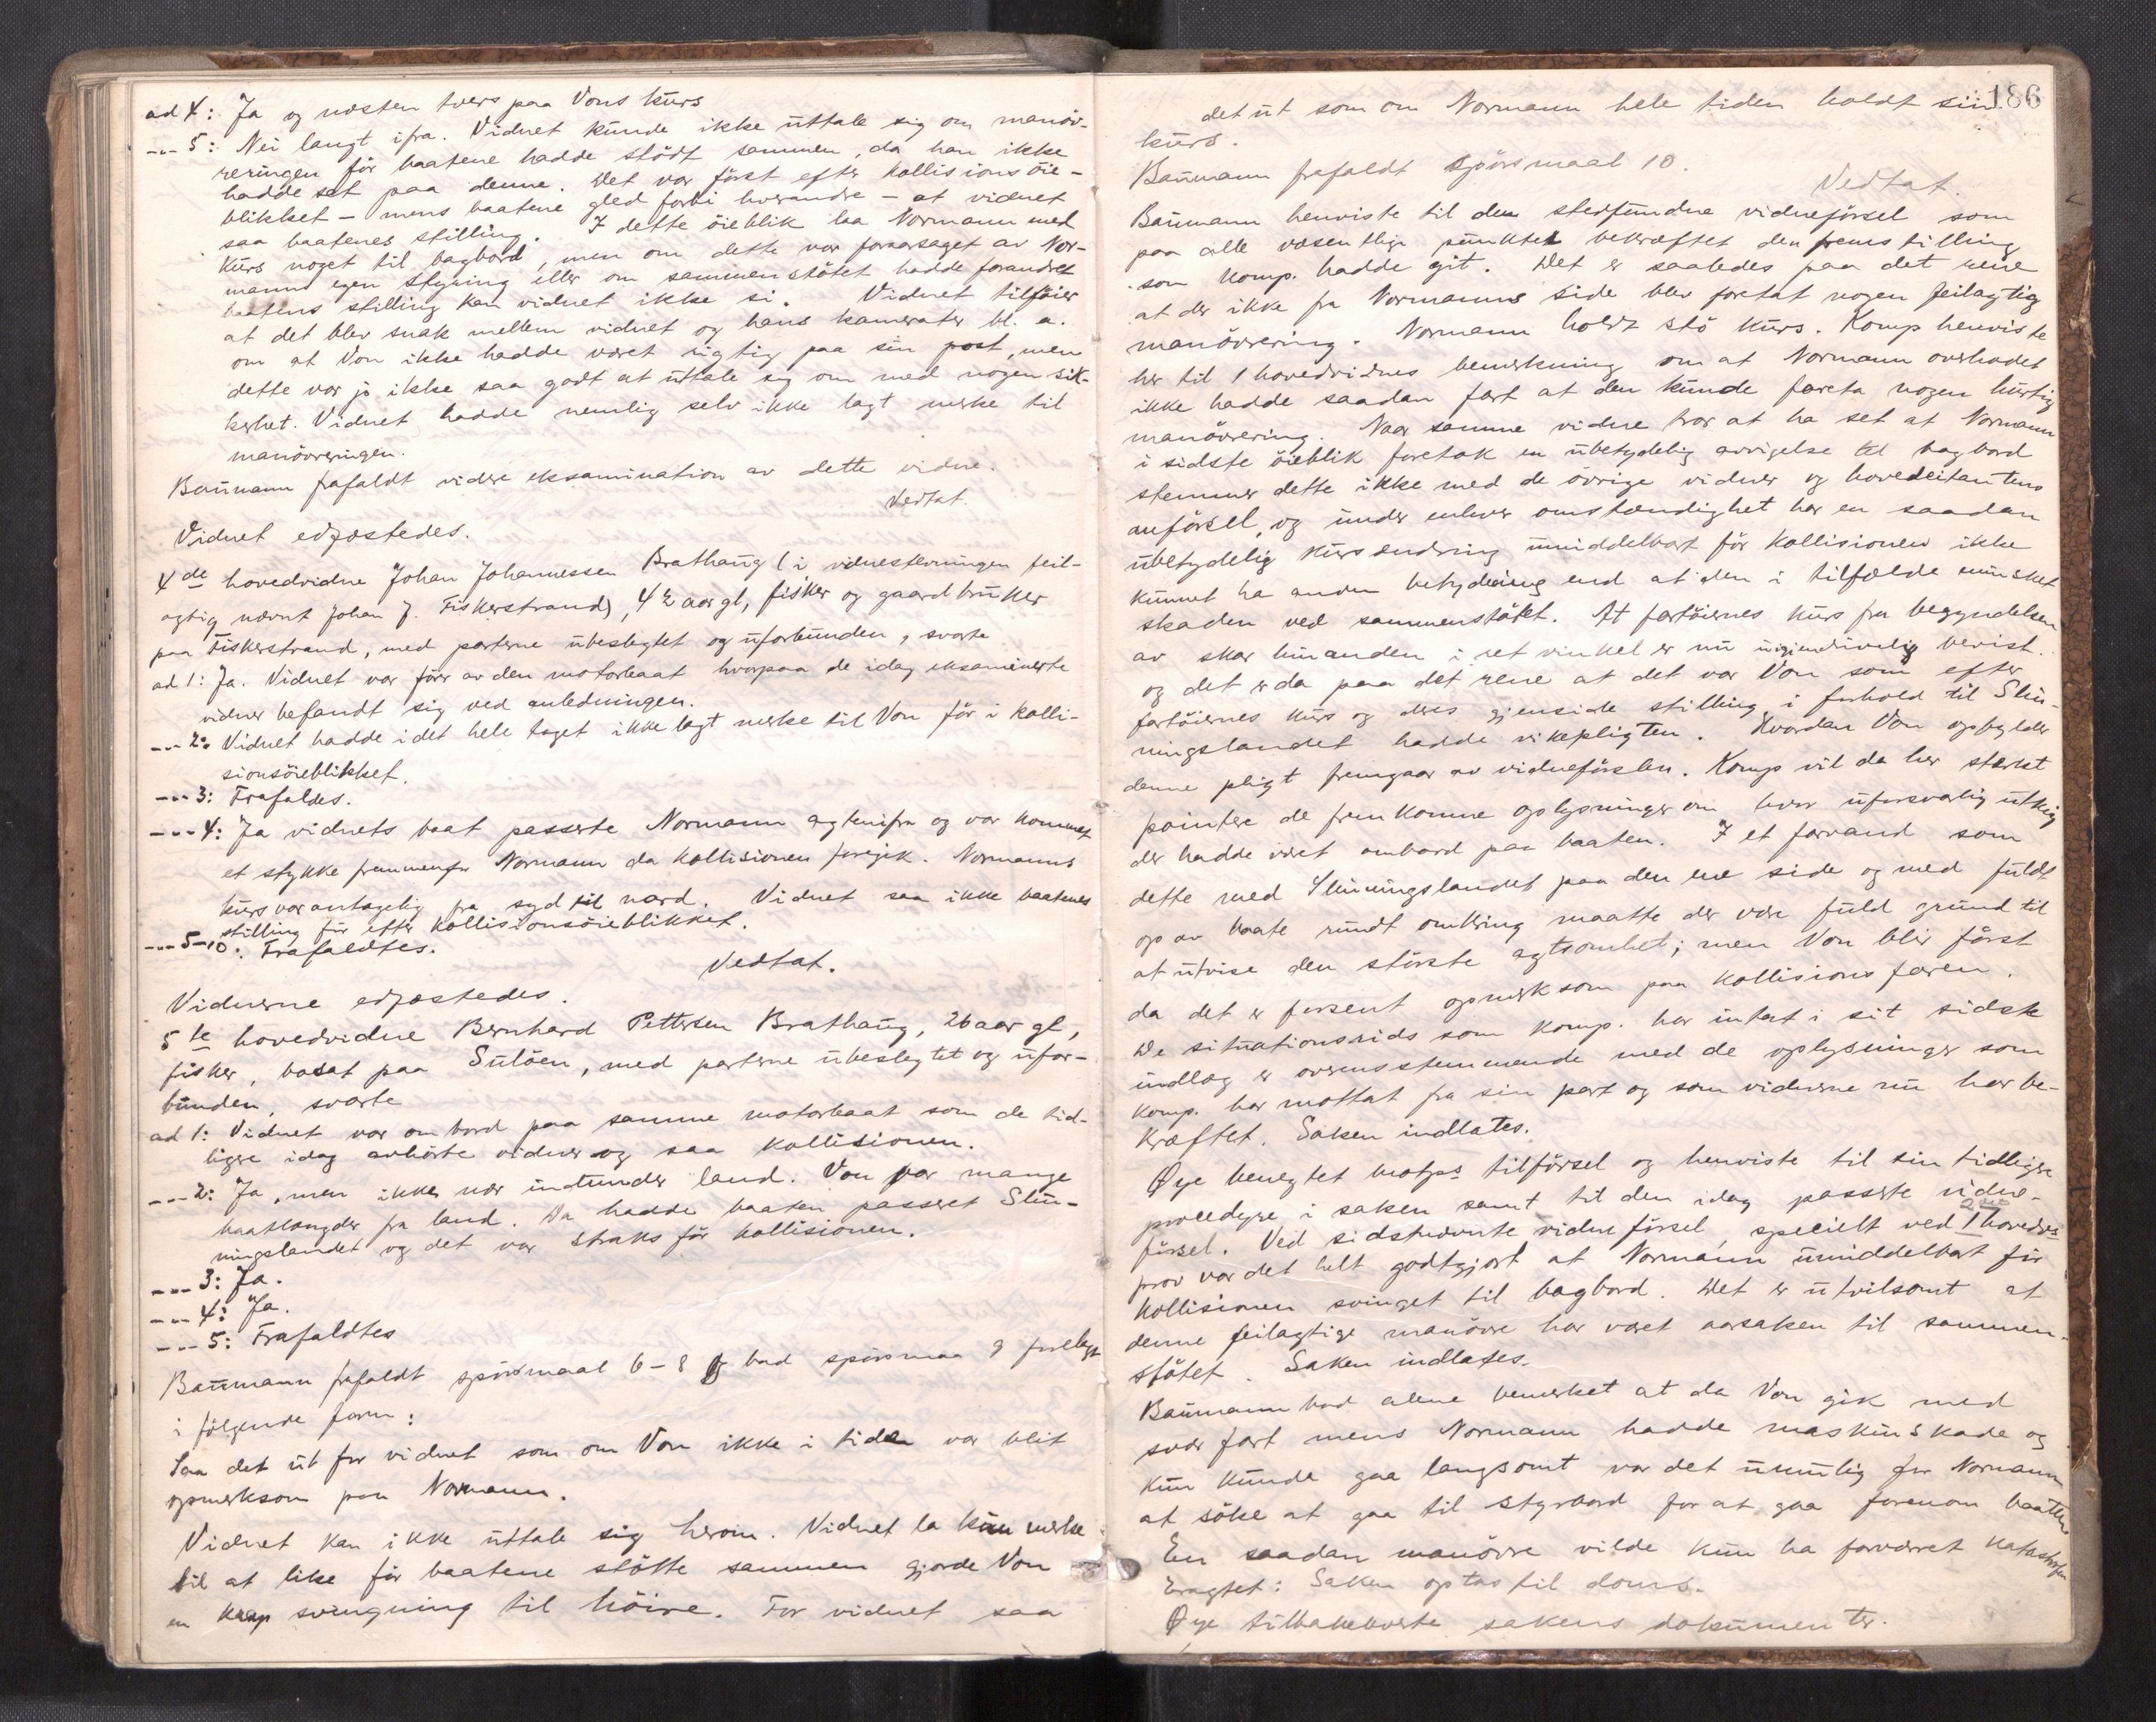 ad 4: Ja og næsten tvers paa Vons kurs
--- 5: Nei langt ifra. Vidnet kunde ikke uttale sig om manöv-
reringen för baatene hadde stödt sammen, da han ikke
hadde set paa denne. Det var först efter kollisionsöie-
blikket - mens baatene gled forbi hverandre - at vidnet
saa baatenes stilling. I dette öieblik laa Normann med
kurs noget til bagbord, men om dette var foraarsaget av Nor-
manns egen styring eller om sammenstötet hadde forandret
baatens stilling kan vidnet ikke si. Vidnet tilföier
at det blev snak mellem vidnet og hans kamerater bl. a.
om at Von ikke hadde været rigtig paa sin post, men
dette var jo ikke saa godt at uttale sig om med nogen sik-
kerhet. Vidnet hadde nemlig selv ikke lagt merke til
manövreringen.
Baumann frafaldt videre eksamination av dette vidne.
Vedtat.
Vidnet edfæstedes.
4de hovedvidne Johan Johannessen Brathaug (i vidnestevningen feil-
agtig nævnt Johan J. Fiskerstrand), 42 aar gl, fisker og gaardbruker
paa Fiskerstrand, med parterne ubeslegtet og uforbunden, svarte
ad 1: Ja. Vidnet var förer av den motorbaat hvorpaa de idag eksaminerte
vidner befandt sig ved anledningen.
--- 2: Vidnet hadde i det hele taget ikke lagt merke til Von för i kolli-
sionsöieblikket.
--- 3: Frafaldes.
--- 4: Ja vidnets baat passerte Normann agtenifra og var kommet
et stykke fremmenfor Normann da kollisionen foregik. Normanns
kurs var antagelig fra syd til nord. Vidnet saa ikke baatenes
stilling för efter kollisionsöieblikket.
--- 5-10: Frafaldtes.
Vedtat.
Vidnerne edfæstedes.
5te hovedvidne Bernhard Pettersen Brathaug, 26 aar gl,
fisker, bosat paa Sulöen, med parterne ubeslegtet og ufor-
bunden, svarte
ad 1: Vidnet var ombord paa samme motorbaat som de tid-
ligere idag avhörte vidner og saa kollisionen.
--- 2: Ja, men ikke nær indunder land. Von var mange
baatlængder fra land. Da hadde baaten passert Slin-
ningslandet og det var straks för kollisionen.
--- 3: Ja.
--- 4: Ja.
--- 5: Frafaldtes
Baumann frafaldt spörsmaal 6-8 og bad spörsmaal 9 forelagt
i fölgende form:
Saa det ut for vidnet som om Von ikke i tide var blit
opmerksom paa Normann.
Vidnet kan ikke uttale sig herom. Vidnet la kun merke
til at like för baatene stötte sammen gjorde Von
en knap svingning til höire. For vidnet saa
186
det ut som om Normann hele tiden holdt sin
kurs.
Baumann frafaldt spörsmaal 10.
Vedtat.
Baumann henviste til den stedfundne vidneförsel som
paa alle væsentlige punkter bekræftet den fremstilling
som komp. hadde git. Det er saaledes paa det rene
at der ikke fra Normanns side blev foretat nogen feilagtig
manövrering. Normann holdt stö kurs. Komp henviste
her til 1 hovedvidnes bemerkning om at Normann overhodet
ikke hadde saadan fart at den kunde foreta nogen hurtig
manövrering. Naar samme vidne tror at ha set at Normann
i sidste öieblik foretok en ubetydelig avvigelse til bagbord
stemmer dette ikke med de övrige vidner og hovedcitantens
anförsel, og under enhver omstændighet har en saadan
ubetydelig kursændring umiddelbart för kollisionen ikke
kunnet ha anden betydning end at den i tilfælde minsket
skaden ved sammenstötet. At fartöiernes kurs fra begyndelsen
av skar hinanden i ret vinkel er nu uigjendrivelig bevist.
og det er da paa det rene at det var Von som efter
fartöiernes kurs og deres gjensidige stilling i forhold til Slin-
ningslandet hadde vikepligten. Hvordan Von opfylder
denne pligt fremgaar av vidneförslen. Komp vil da her sterkt
pointere de fremkomne oplysninger om hvor uforsvarlig utkig
der hadde været ombord paa baaten. I et farvand som
dette med Slinningslandet paa den ene side og med fuldt
op av baate rundt omkring maatte der være fuld grund til
at utvise den störste agtsomhet; men Von blir först
da det er forsent opmerksom paa kollisionsfaren.
De situationsrids som komp. har intat i sit sidste
indlæg er overensstemmende med de oplysninger som
komp. har mottat fra sin part og som vidnerne nu har be-
kræftet. Saken indlates.
Øye benegtet motps tilförsel og henviste til sin tidligere
procedyre i saken samt til den idag passerte vidne-
försel. Ved sidstnævnte vidneförsel, specielt ved 1 hovedvs
prov var det helt godtgjort at Normann umiddelbart för
kollisionen svinget til bagbord. Det er utvilsomt at
denne feilagtige manövre har været aarsaken til sammen-
stötet. Saken indlates.
Baumann bad alene bemerket at da Von gik med
svær fart mens Normann hadde maskinskade og
kun kunde gaa langsomt var det umulig for Normann
at söke at gaa til styrbord for at gaa forenom baaten
En saadan manövre vilde kun ha forværret katastrofen
Eragtet: Saken optas til doms.
Øye tilbakeleverte sakens dokumenter.